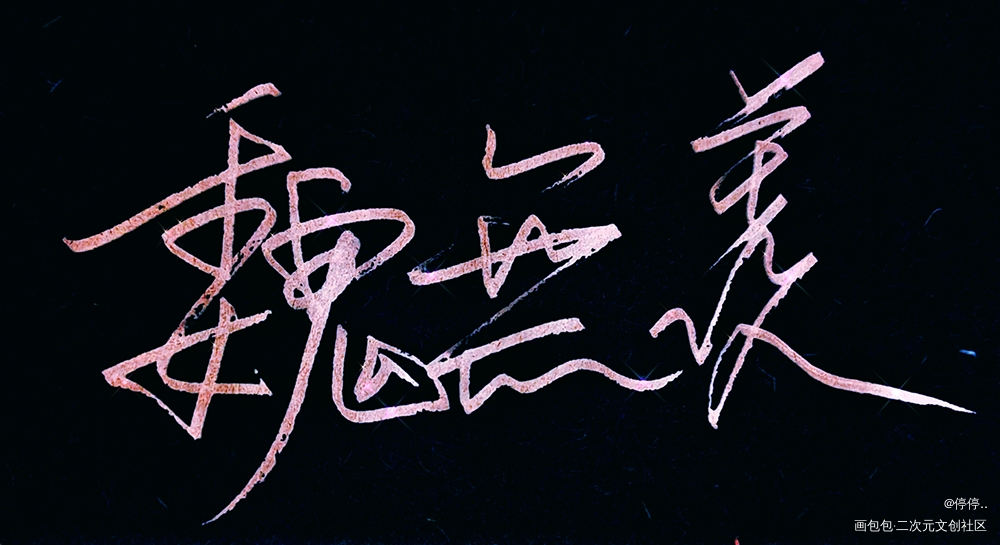 魏無羡
@停停..
画包包·二次元文创社区